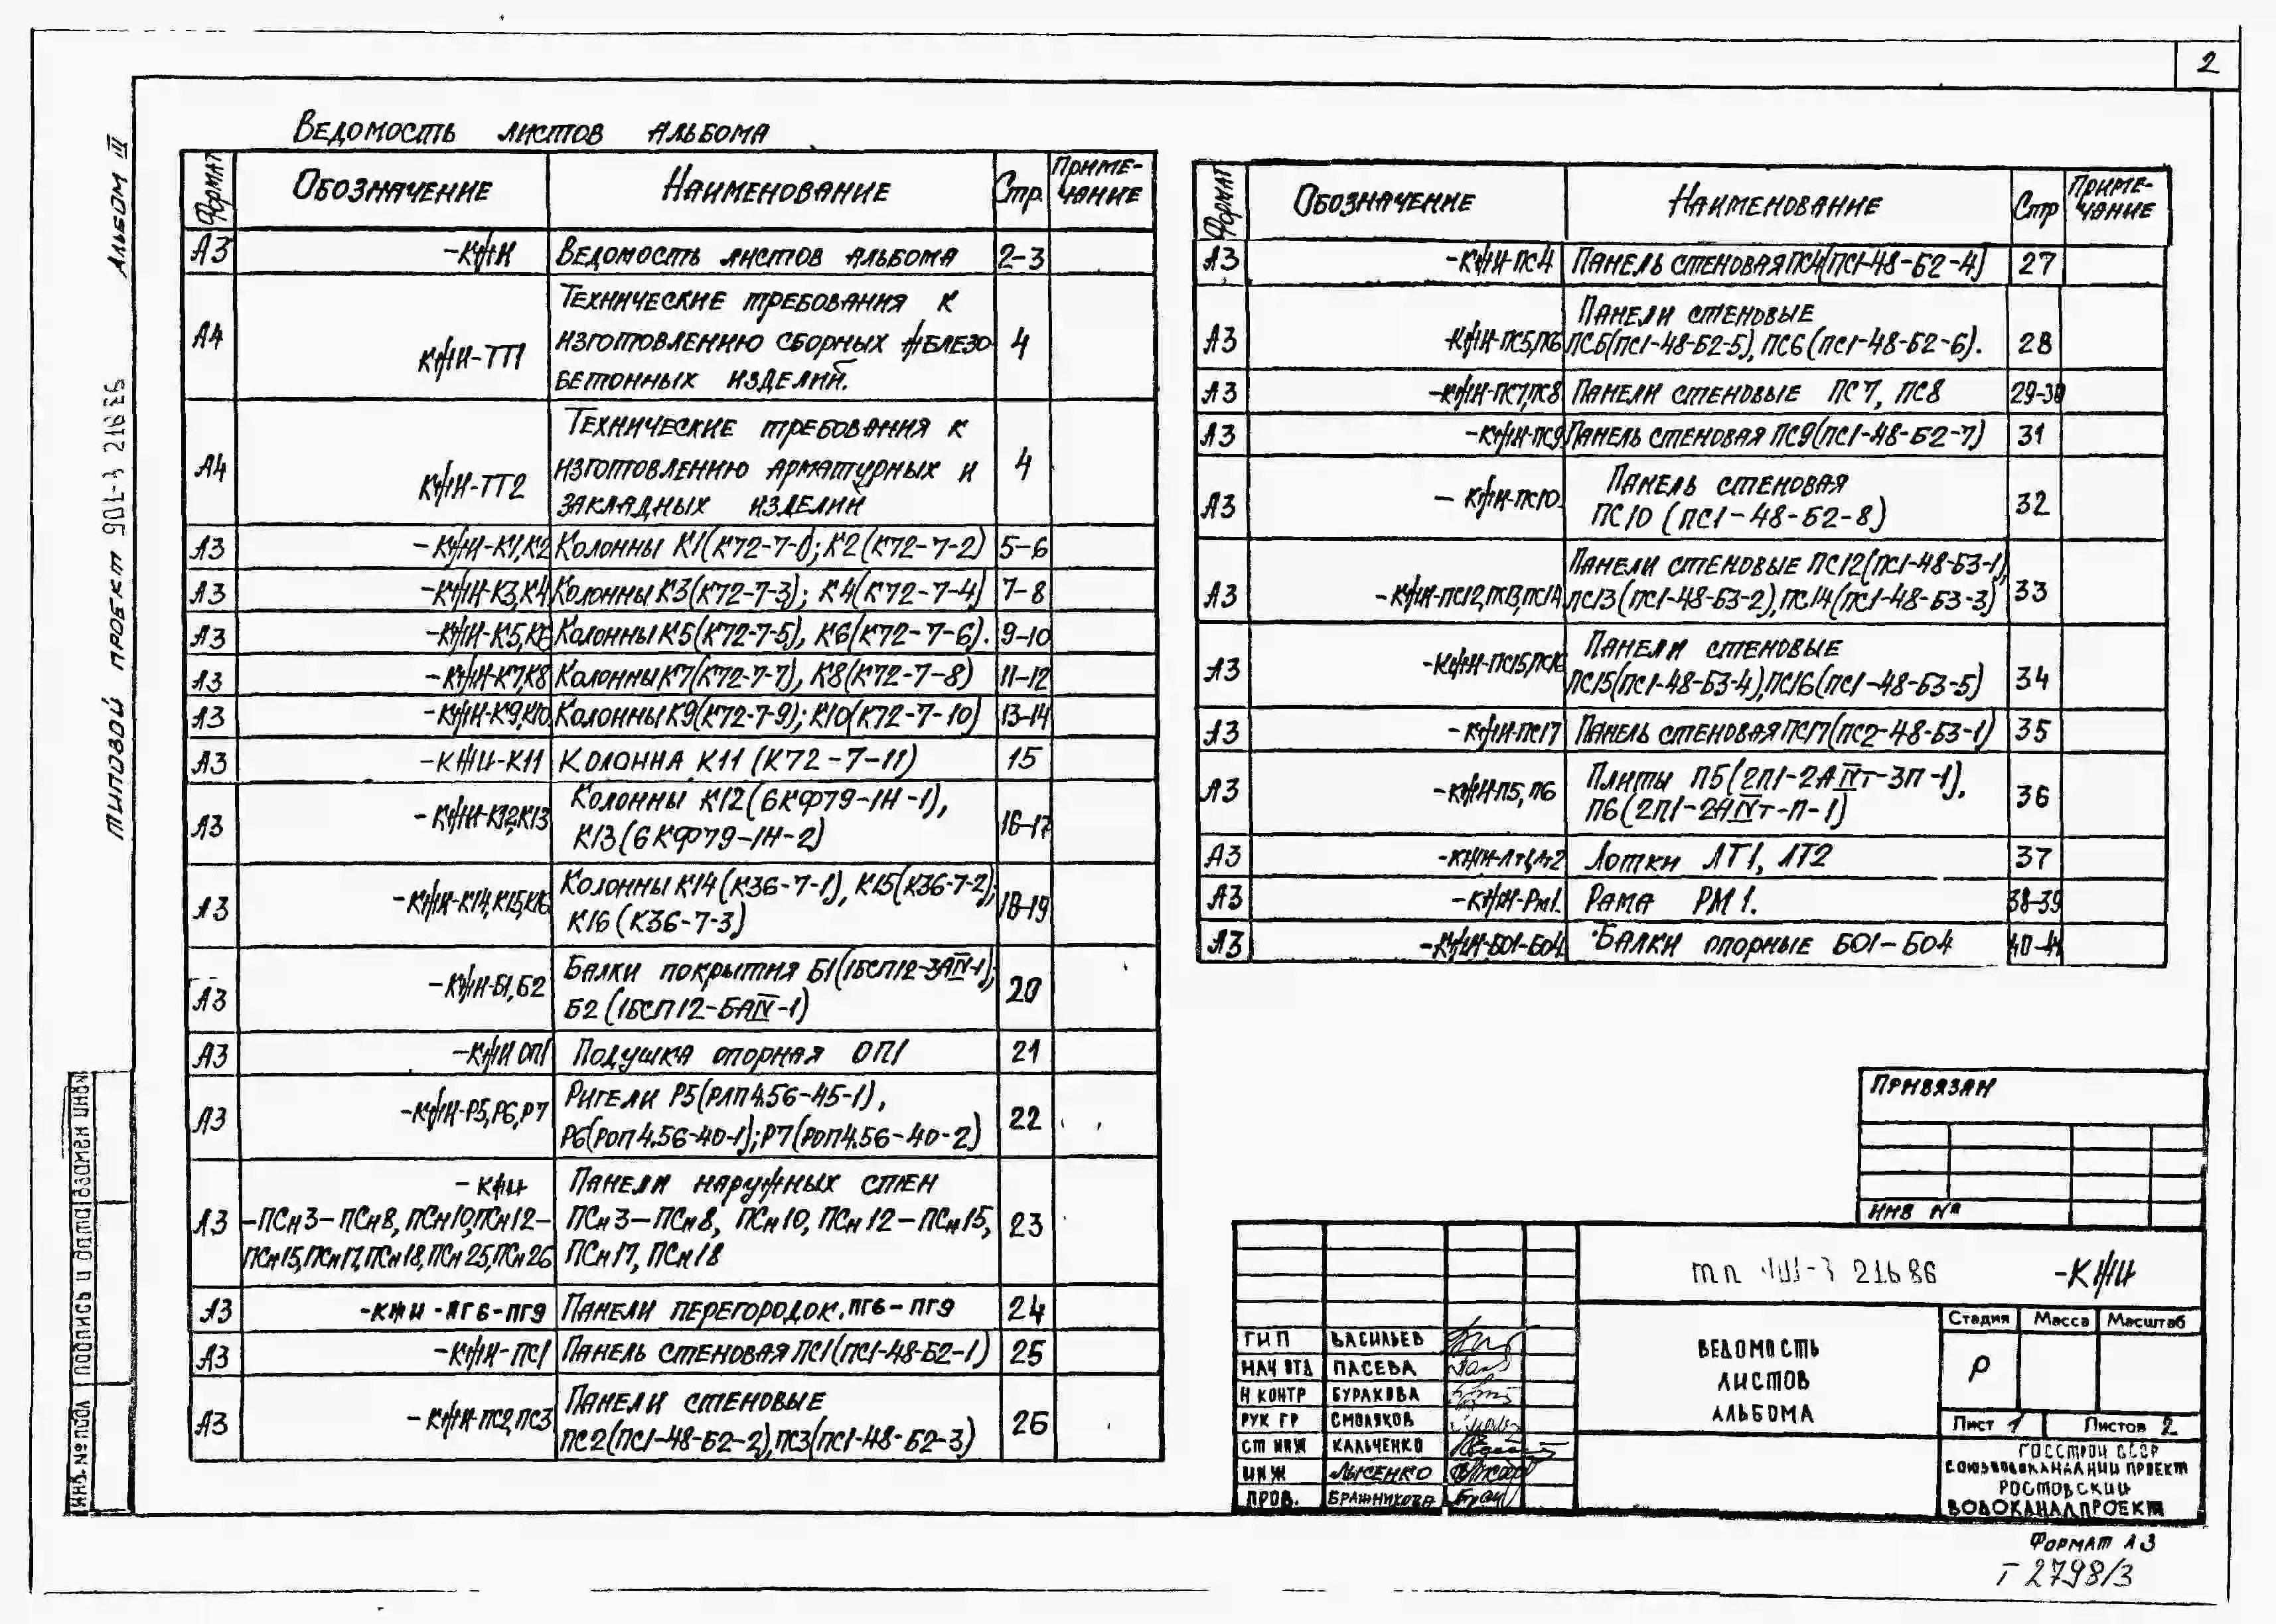 2
Альбом III
Типовой проект 901-3 216.86
Ведомость листов альбома
Формат Обозначение Наименование Стр. Примечание
А3 -КЖИ Ведомость листов альбома 2-3
А4 КЖИ-ТТ1 Технические требования к
изготовлению сборных железо
бетонных изделий. 4
А4 КЖИ-ТТ2 Технические требования к
изготовлению арматурных и
закладных изделий 4
А3 -КЖИ-К1,К2 Колонны К1(К72-7-1); К2(К72-7-2) 5-6
А3 -КЖИ-К3,К4 Колонны К3(К72-7-3); К4(К72-7-4) 7-8
А3 -КЖИ-К5,К6 Колонны К5(К72-7-5), К6(К72-7-6). 9-10
А3 -КЖИ-К7,К8 Колонны К7(К72-7-7), К8(К72-7-8) 11-12
А3 -КЖИ-К9,К10 Колонны К9(К72-7-9); К10(К72-7-10) 13-14
А3 -КЖИ-К11 Колонна К11 (К72-7-11) 15
А3 -КЖИ-К12,К13 Колонны К12(6КФ79-1Н-1),
К13(6КФ79-1Н-2) 16-17
А3 -КЖИ-К14,К15,К16 Колонны К14(К36-7-1), К15(К36-7-2);
К16(К36-7-3) 18-19
А3 -КЖИ-Б1,Б2 Балки покрытия Б1(1БСП12-3АIV-1);
Б2(1БСП12-5АIV-1) 20
А3 -КЖИ ОП1 Подушка опорная ОП1 21
А3 -КЖИ-Р5,Р6,Р7 Ригели Р5(РЛП4.56-45-1),
Р6(РОП4.56-40-1); Р7(РОП4.56-40-2) 22
А3 -КЖИ
-ПСн3-ПСн8, ПСн10,ПСн12-
ПСн15,ПСн17,ПСн18,ПСн25,ПСн26 Панели наружных стен
ПСн3-ПСн8, ПСн10, ПСн12-ПСн15,
ПСн17, ПСн18 23
А3 -КЖИ-ПГ6-ПГ9 Панели перегородок. ПГ6-ПГ9 24
А3 -КЖИ-ПС1 Панель стеновая ПС1(ПС1-48-Б2-1) 25
А3 -КЖИ-ПС2,ПС3 Панели стеновые
ПС2(ПС1-48-Б2-2),ПС3(ПС1-48-Б2-3) 26
Формат Обозначение Наименование Стр Примечание
А3 -КЖИ-ПС4 Панель стеновая ПС4(ПС1-48-Б2-4) 27
А3 -КЖИ-ПС5,П6 Панели стеновые
ПС5(ПС1-48-Б2-5), ПС6(ПС1-48-Б2-6). 28
А3 -КЖИ-ПС7,ПС8 Панели стеновые ПС7, ПС8 29-30
А3 -КЖИ-ПС9 Панель стеновая ПС9(ПС1-48-Б2-7) 31
А3 -КЖИ-ПС10. Панель стеновая
ПС10 (ПС1-48-Б2-8) 32
А3 -КЖИ-ПС12,ПС13,ПС14 Панели стеновые ПС12(ПС1-48-Б3-1)
ПС13(ПС1-48-Б3-2), ПС14(ПС1-48-Б3-3) 33
А3 -КЖИ-ПС15,ПС16 Панели стеновые
ПС15(ПС1-48-Б3-4),ПС16(ПС1-48-Б3-5) 34
А3 -КЖИ-ПС17 Панель стеновая ПС17(ПС2-48-Б3-1) 35
А3 -КЖИ-П5, П6 Плиты П5(2П1-2АIVт-3П-1).
П6(2П1-2АIVт-П-1) 36
А3 -КЖИ-Лт1,Лт2 Лотки ЛТ1, ЛТ2 37
А3 -КЖИ-Рм1. Рама РМ1. 38-39
А3 -КЖИ-Б01-Б04 Балки опорные Б01-Б04 40-41
Привязан
Инв №
ТП 901-3 216.86 -КЖИ
ГИП Васильев
Нач отд Пасева
Н контр Буракова
Рук гр Смоляков
Ст инж Кальченко
Инж Лысенко
Пров. Бражникова
Ведомость
листов
альбома
Стадия Масса Масштаб
Р
Лист 1 Листов 2
Госстрой СССР
Союзводоканалниипроект
Ростовский
Водоканалпроект
Инв. № подл Подпись и дата Взамен инв №
Формат А3
Т 2798/3